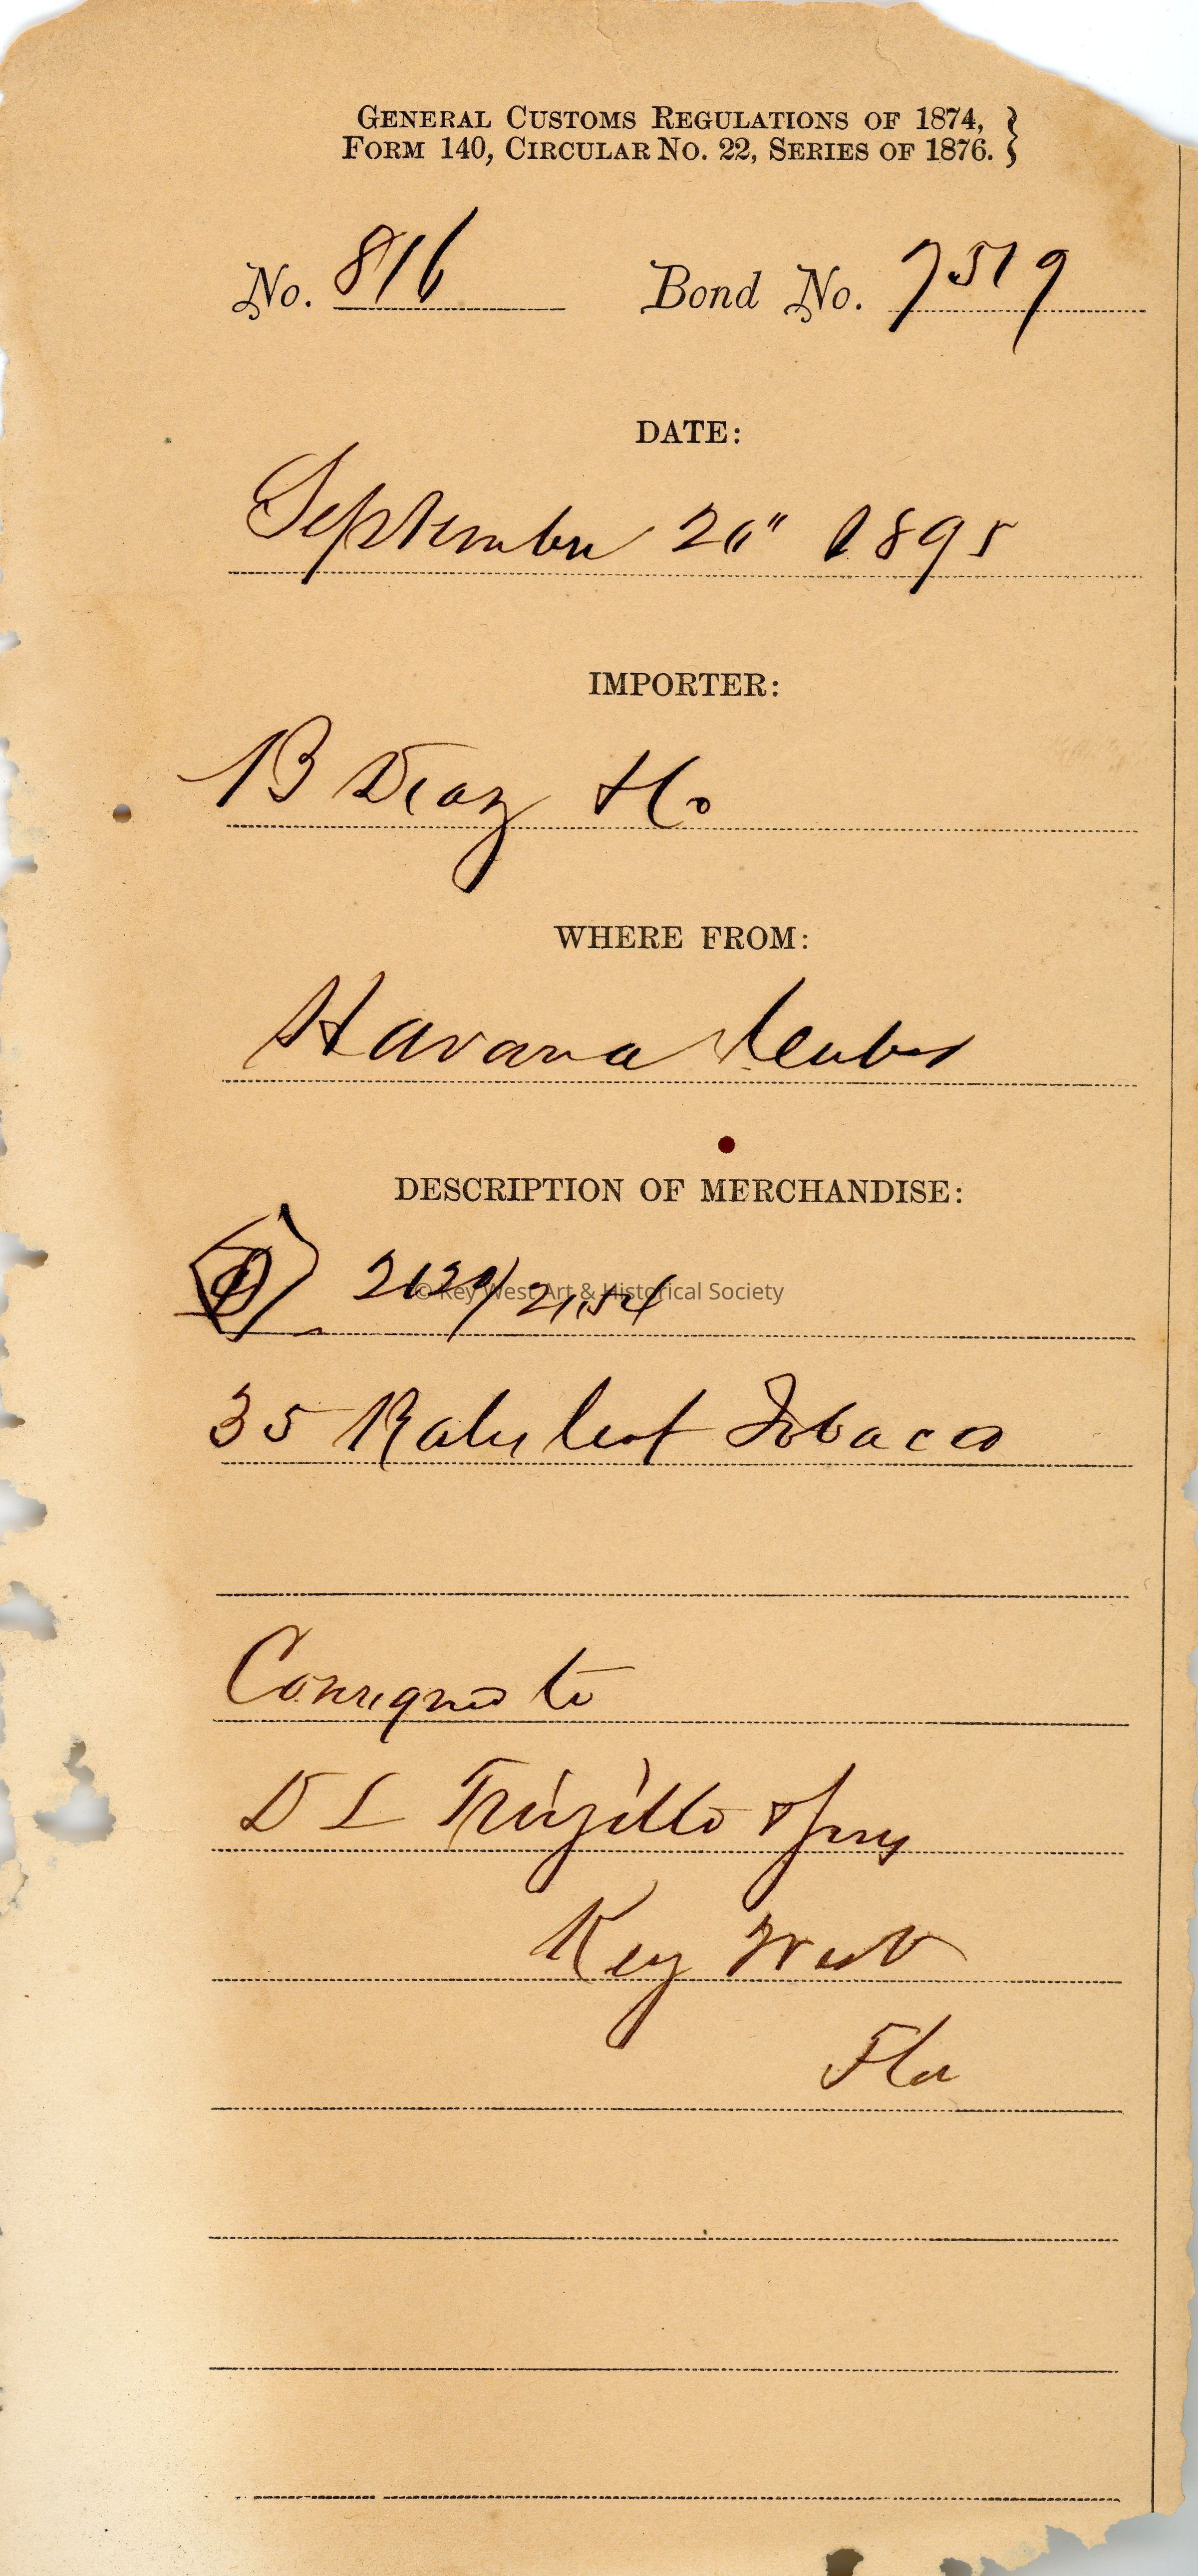 GENERAL CUSTOMS REGULATIONS OF 1874,
FORM 140, CIRCULAR No. 22, SERIES OF 1876.
No. 816 Bond No. 7519
DATE:
September 20" 1895
IMPORTER:
B Diaz & Co
WHERE FROM:
Havana Cuba
DESCRIPTION OF MERCHANDISE:
D 2120/2154
© Key West Art & Historical Society
35 Bales leaf Tobacco
Consigned to
D L Trujillo & Sons
Key West
Fla